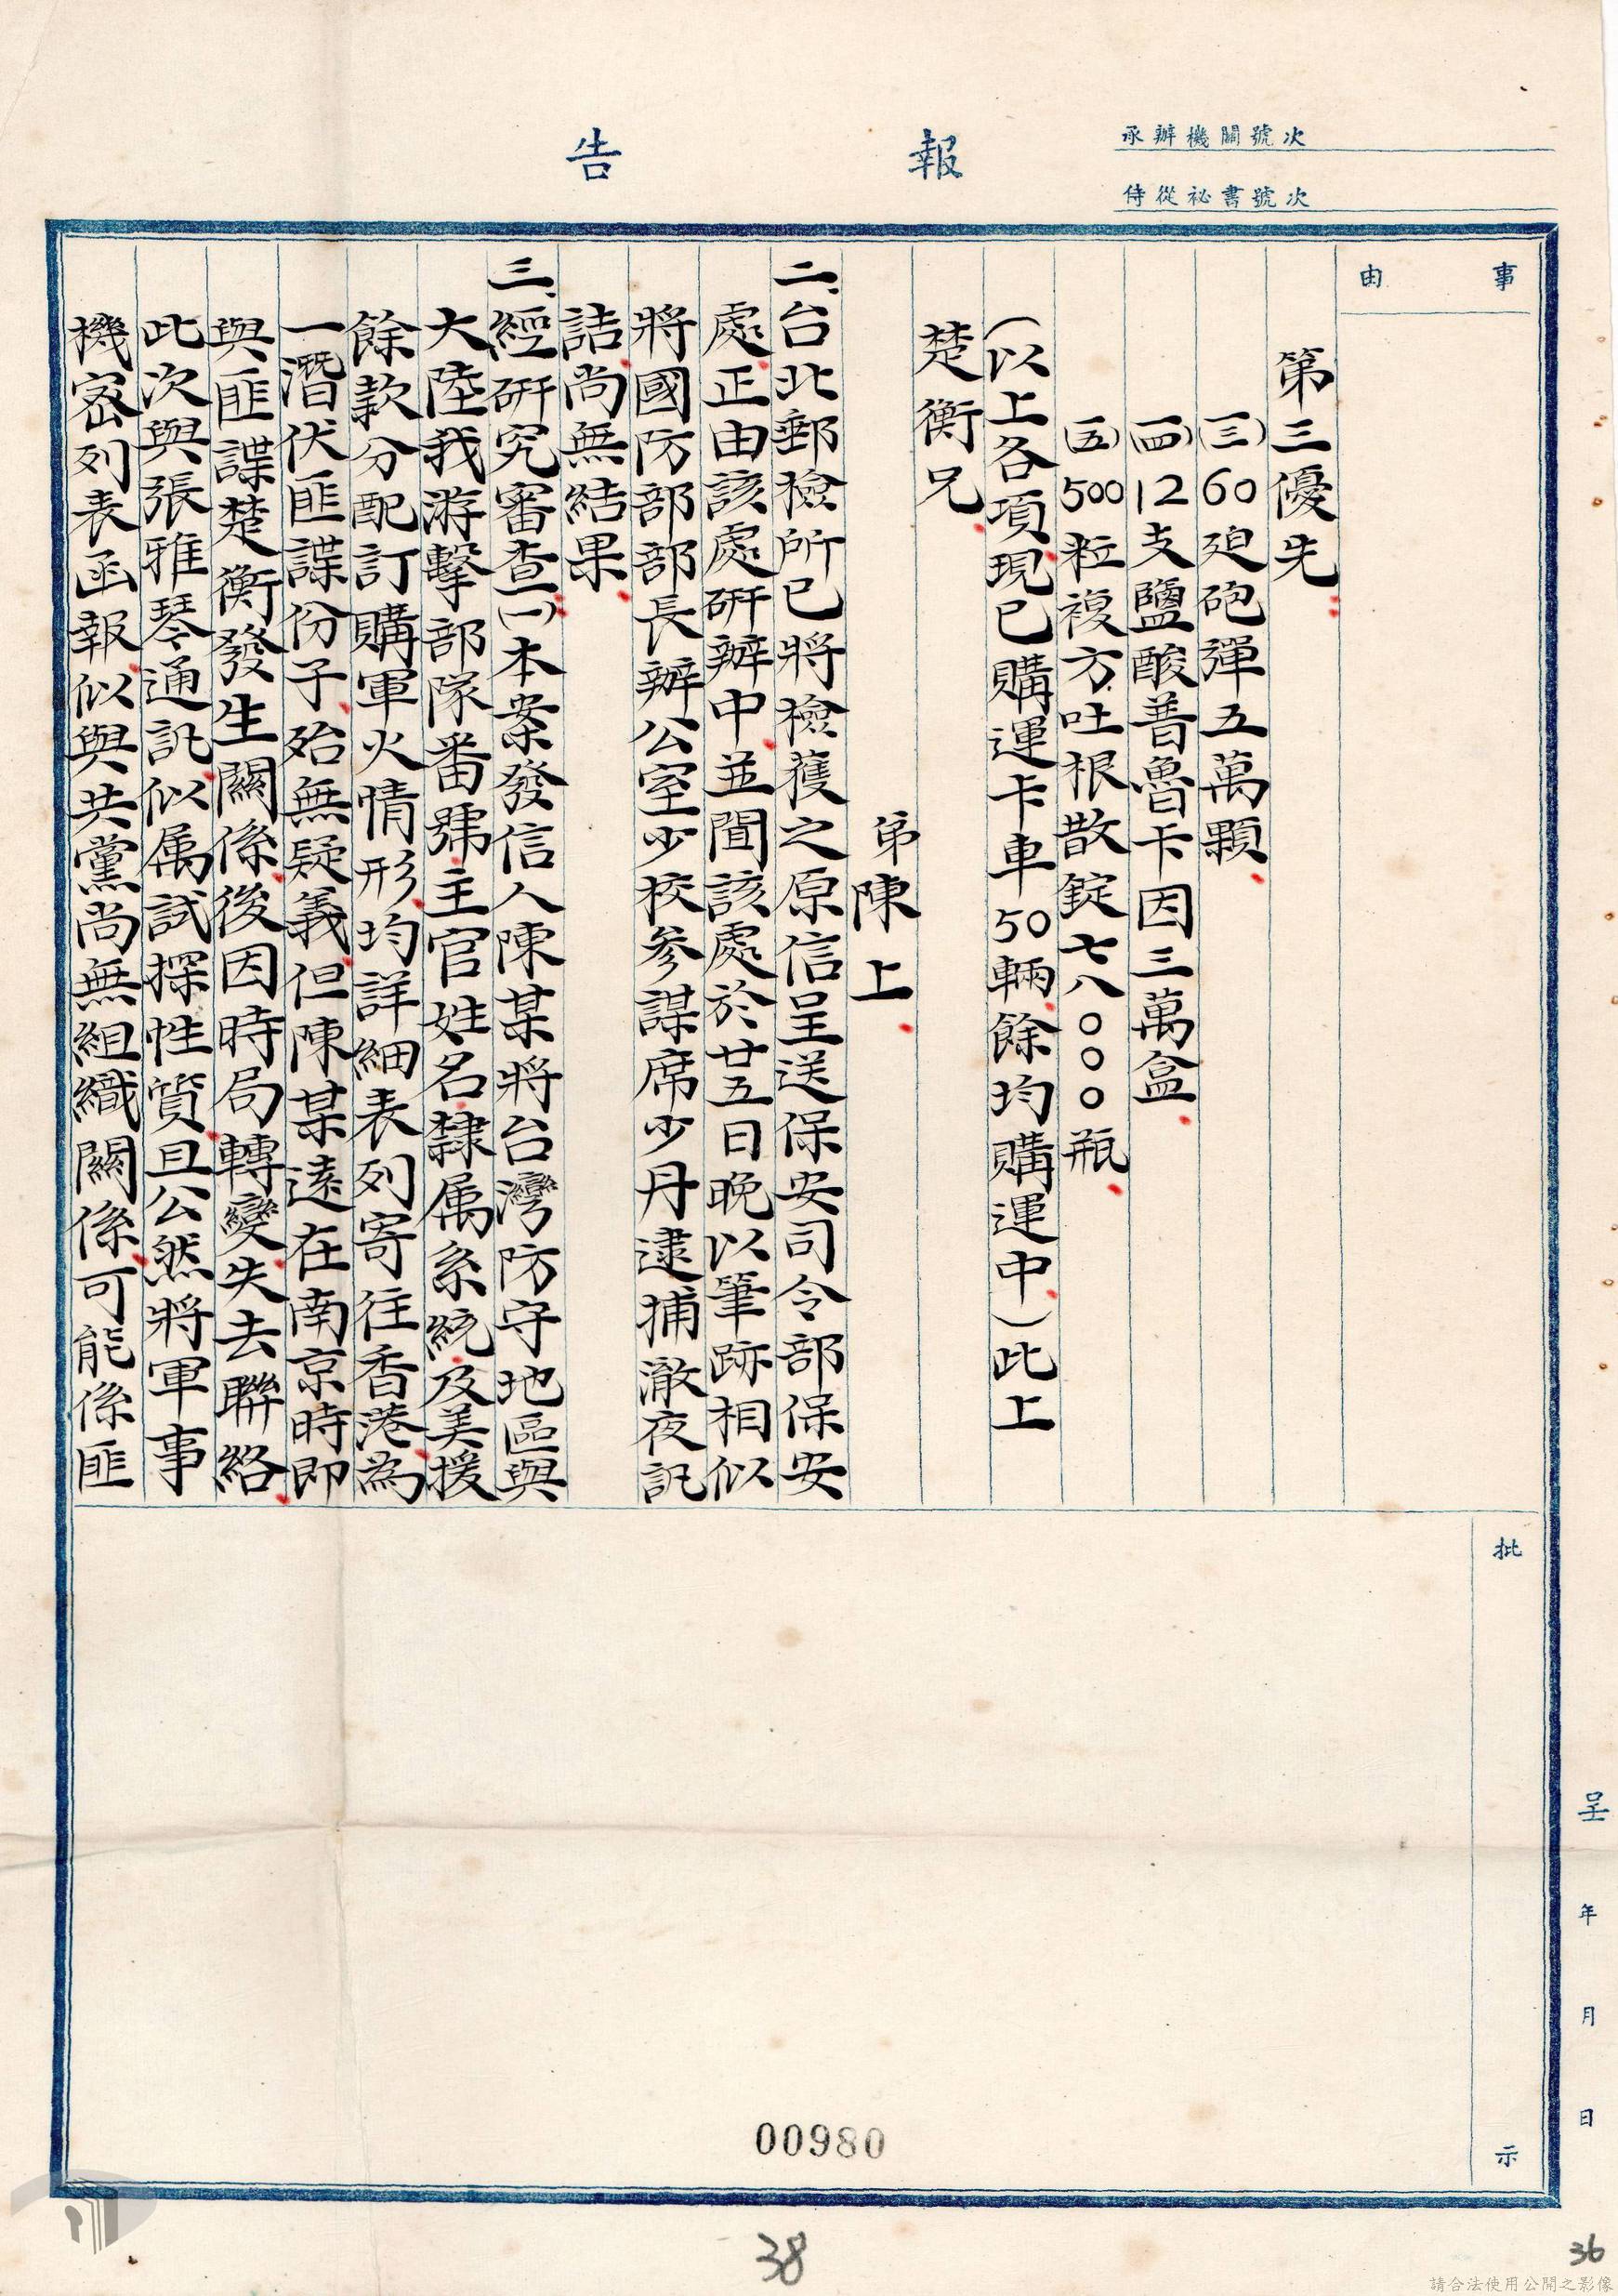 承辦機關號次
侍從祕書號次
報告
事由
第三優先
(三)60廹砲彈五萬顆
(四)12支鹽酸普魯卡因三萬盒
(五)500粒複方吐根散錠七八〇〇〇瓶
(以上各項現已購運卡車50輛餘均購運中)此上
楚衡兄
弟陳上
二、台北郵檢所已將檢獲之原信呈送保安司令部保安
處正由該處研辦中並聞該處於廿五日晚以筆跡相似
將國防部部長辦公室少校參謀席少丹逮捕澈夜訊
詰尚無結果
三、經研究審查(一)本案發信人陳某將台灣防守地區與
大陸我游擊部隊番號主官姓名隸属系統及美援
餘款分配訂購軍火情形均詳細表列寄往香港為
一潛伏匪諜份子殆無疑義但陳某遠在南京時即
與匪諜楚衡發生關係後因時局轉變失去聯絡
此次與張雅琴通訊似属試探性質且公然將軍事
機密列表函報似與共黨尚無組織關係可能係匪
批示
呈年月日
00980
38
36
請合法使用公開之影像